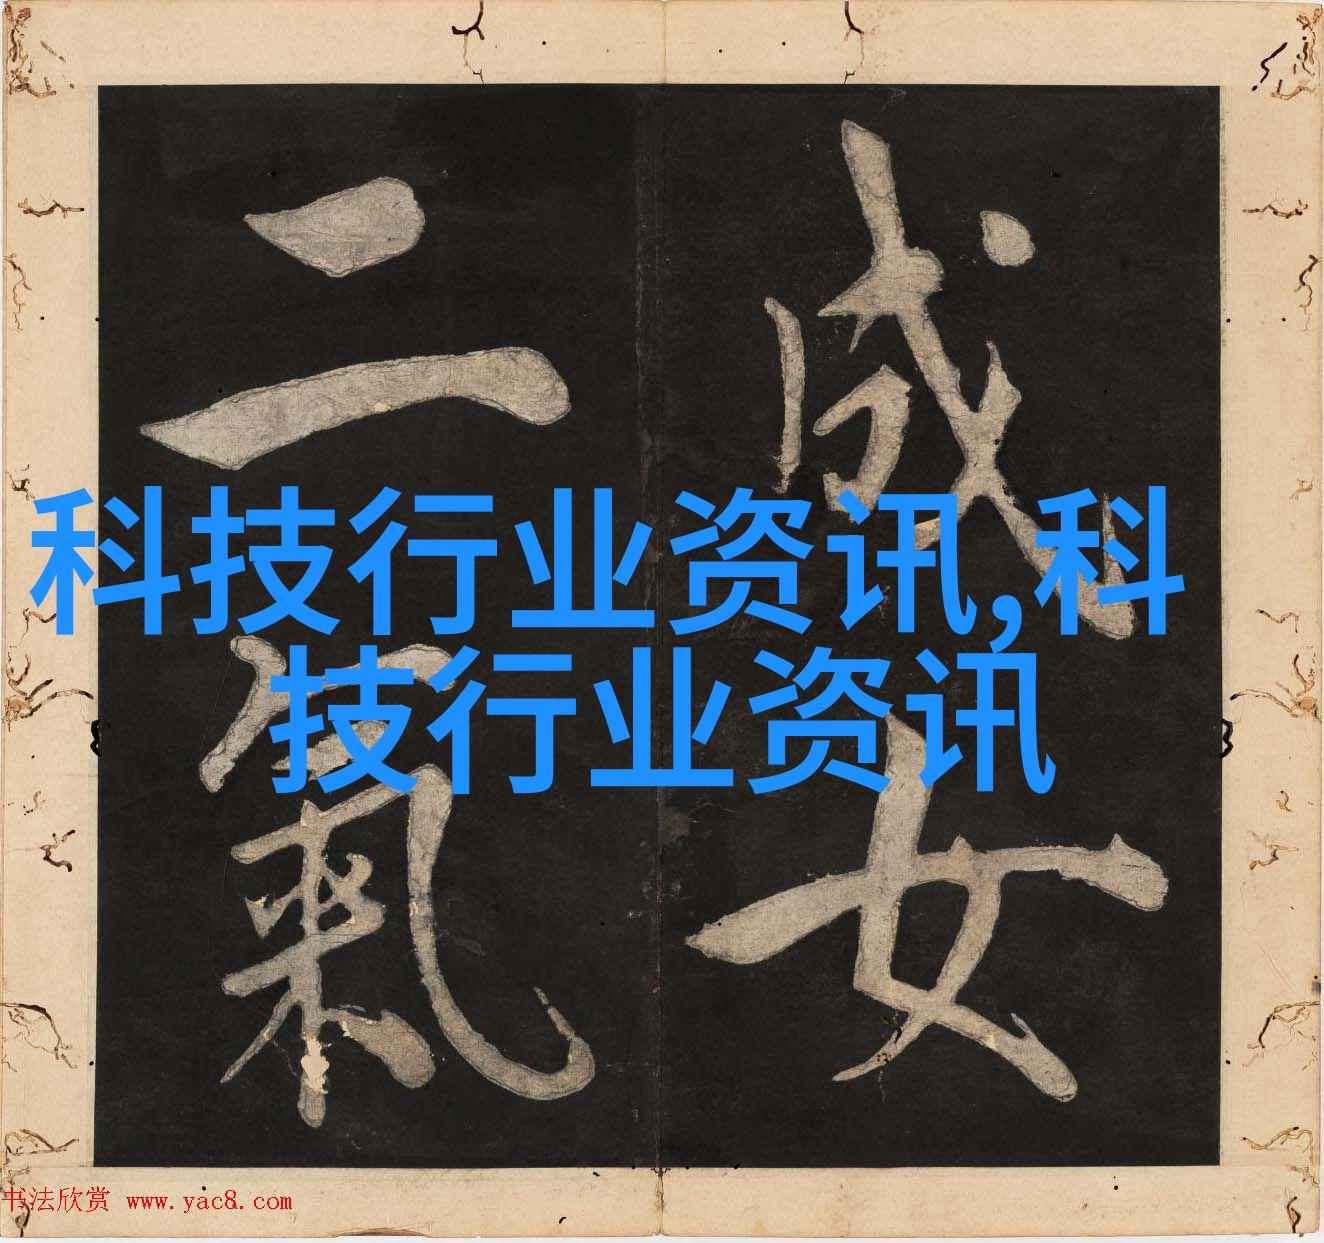 成女
二氣
科技行业资讯,科
技行业资讯
书法欣赏 www.yac8.com